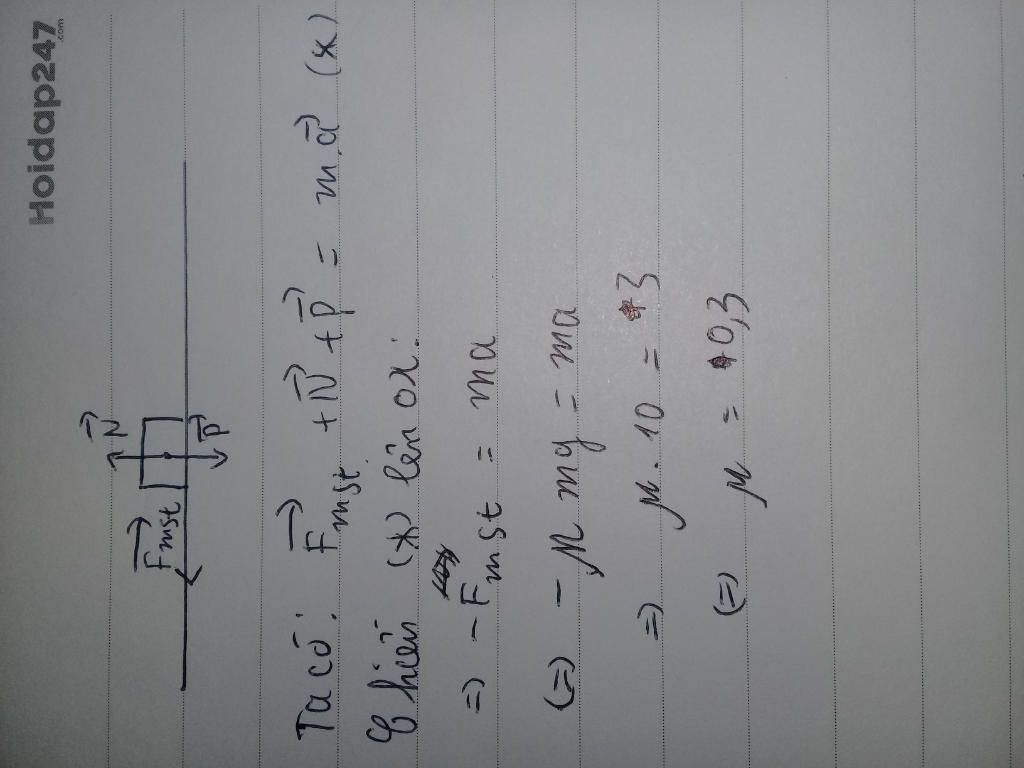 Hoidap247
.com
N→
Fmst→
P→
Ta có: Fmst→ + N→ + P→ = m.a→ (x)
Chiếu (x) lên ox:
=> - Fmst = ma
(=) - μmg = ma
=> μ.10 = 3
(=) μ = 0,3